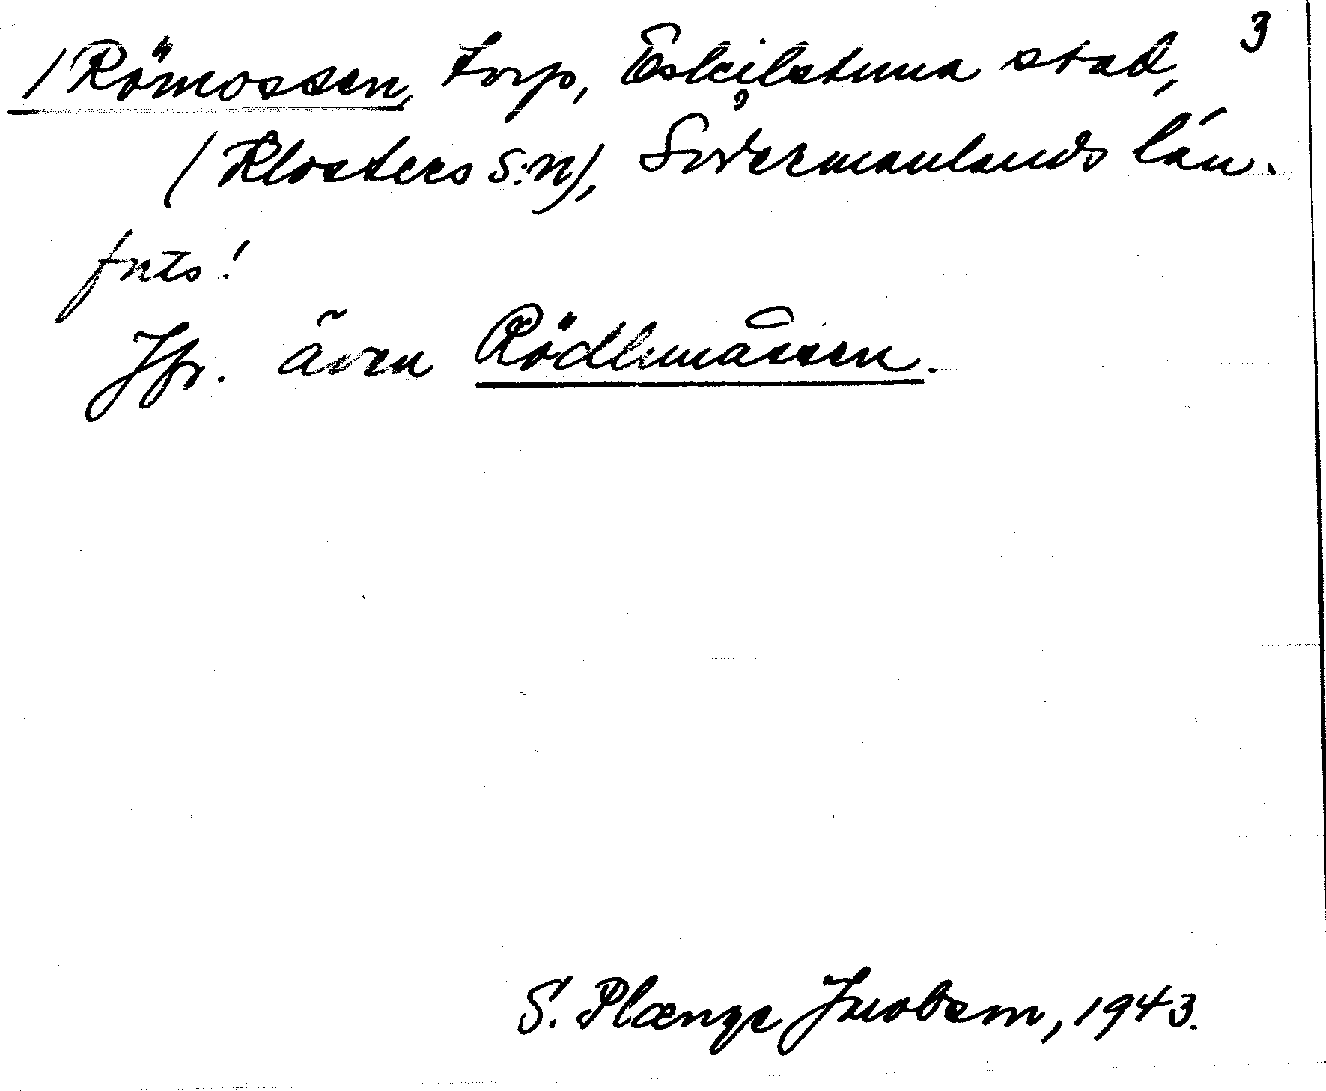 3
/ Römossen, torp, Eskilstuna stad,
(Klosters s:n), Södermanlands län.
fnts!
Jfr. även Rödlumåssen.
S. Plænge Jacobson, 1943.